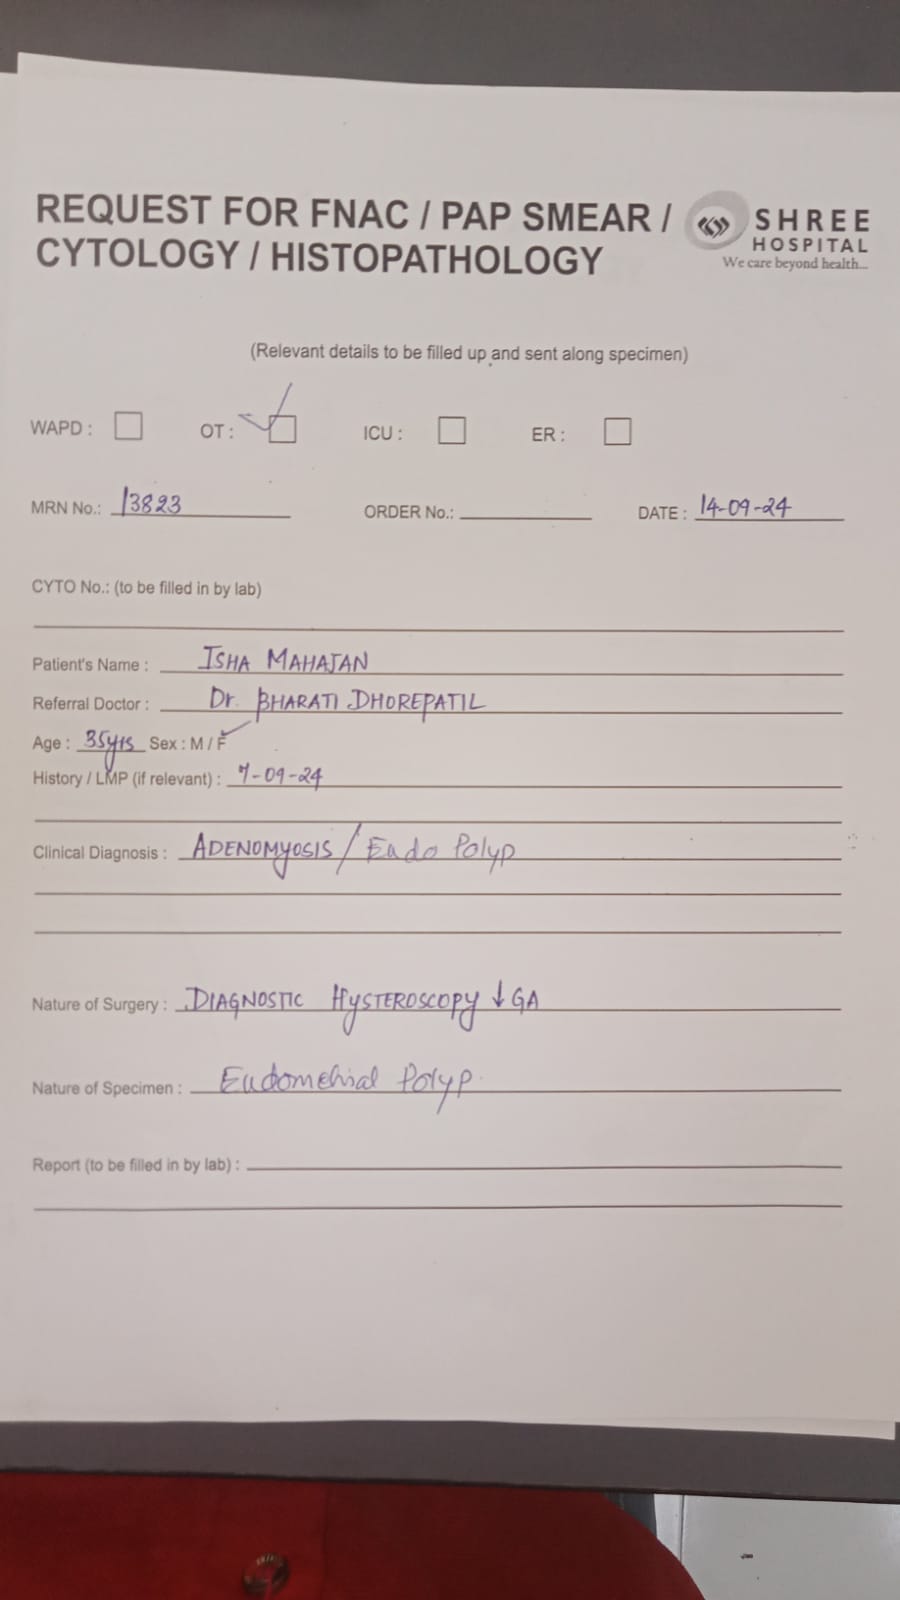 REQUEST FOR FNAC / PAP SMEAR /
CYTOLOGY / HISTOPATHOLOGY
SHREE
HOSPITAL
We care beyond health...
(Relevant details to be filled up and sent along specimen)
WAPD : OT : ICU : ER :
MRN No.: 13823 ORDER No.: DATE : 14-09-24
CYTO No.: (to be filled in by lab)
Patient's Name : ISHA MAHAJAN
Referral Doctor : Dr. BHARATI DHOREPATIL
Age : 35yrs Sex : M / F
History / LMP (if relevant) : 7-09-24
Clinical Diagnosis : ADENOMYOSIS / Endo Polyp
Nature of Surgery : DIAGNOSTIC HYSTEROSCOPY ↓ GA
Nature of Specimen : Endometrial Polyp.
Report (to be filled in by lab) :